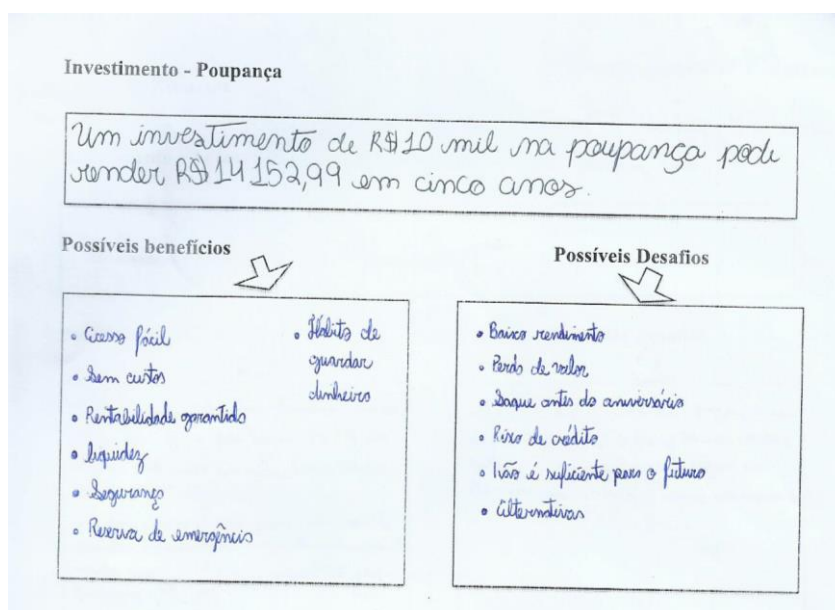 Investimento - Poupança
Um investimento de R$10 mil na poupança pode
render R$14152,99 em cinco anos.
Possíveis benefícios
• Acesso fácil
• Sem custos
• Rentabilidade garantida
• Liquidez
• Segurança
• Reserva de emergência
• Hábito de
guardar
dinheiro
Possíveis Desafios
• Baixo rendimento
• Perda de valor
• Saque antes do aniversário
• Risco de crédito
• Não é suficiente para o futuro
• Alternativas